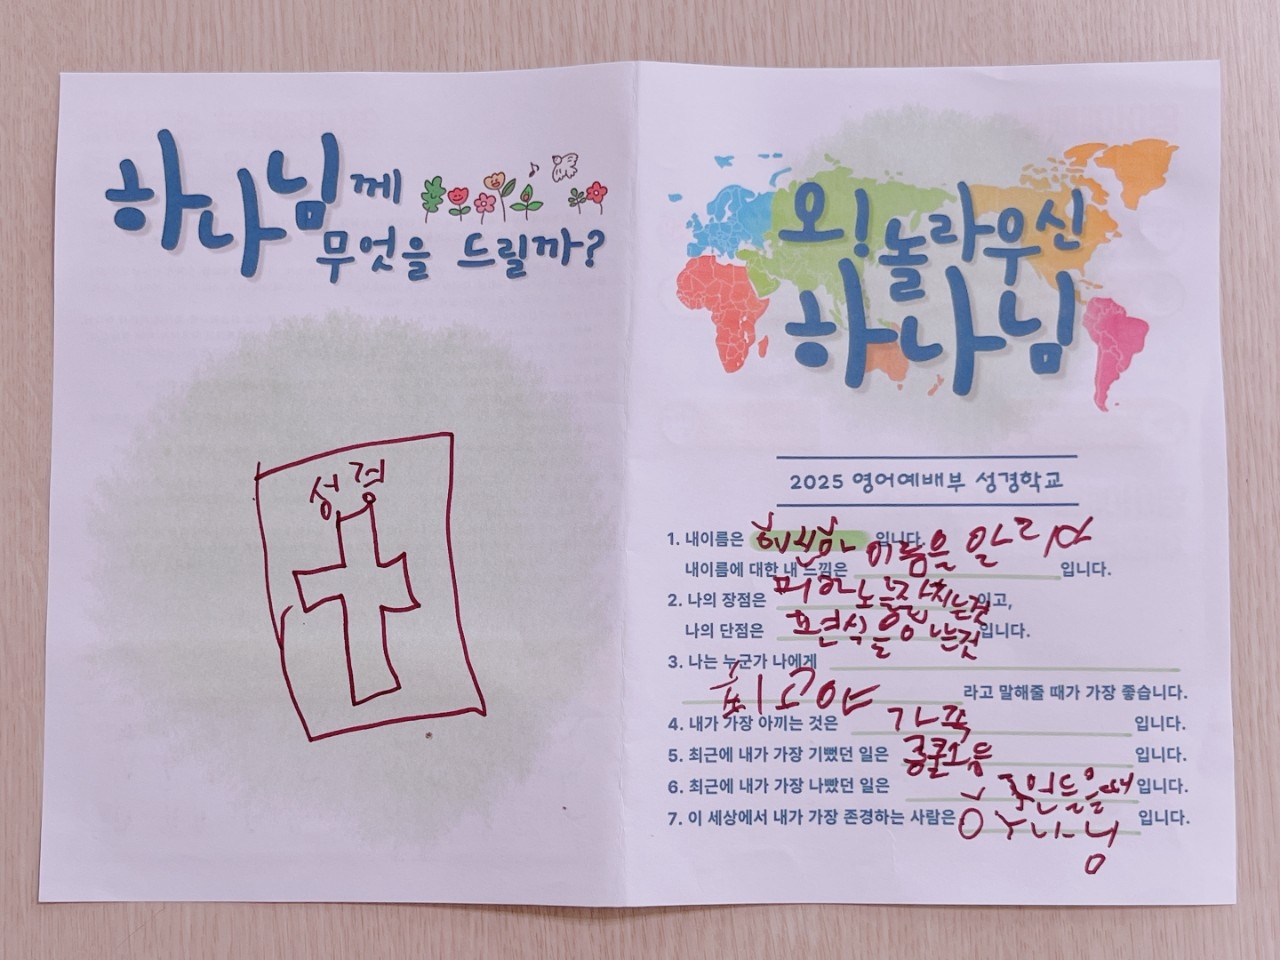 하나님께
무엇을 드릴까?
성경
오! 놀라우신
하나님
2025 영어예배부 성경학교
1. 내이름은 입니다.
이름을 알리자
내이름에 대한 내 느낌은 입니다.
2. 나의 장점은 이고,
나의 단점은 표현식을 입니다.
3. 나는 누군가 나에게
최고야 라고 말해줄 때가 가장 좋습니다.
4. 내가 가장 아끼는 것은 가족 입니다.
5. 최근에 내가 가장 기뻤던 일은 입니다.
6. 최근에 내가 가장 나빴던 일은 입니다.
7. 이 세상에서 내가 가장 존경하는 사람은 입니다.